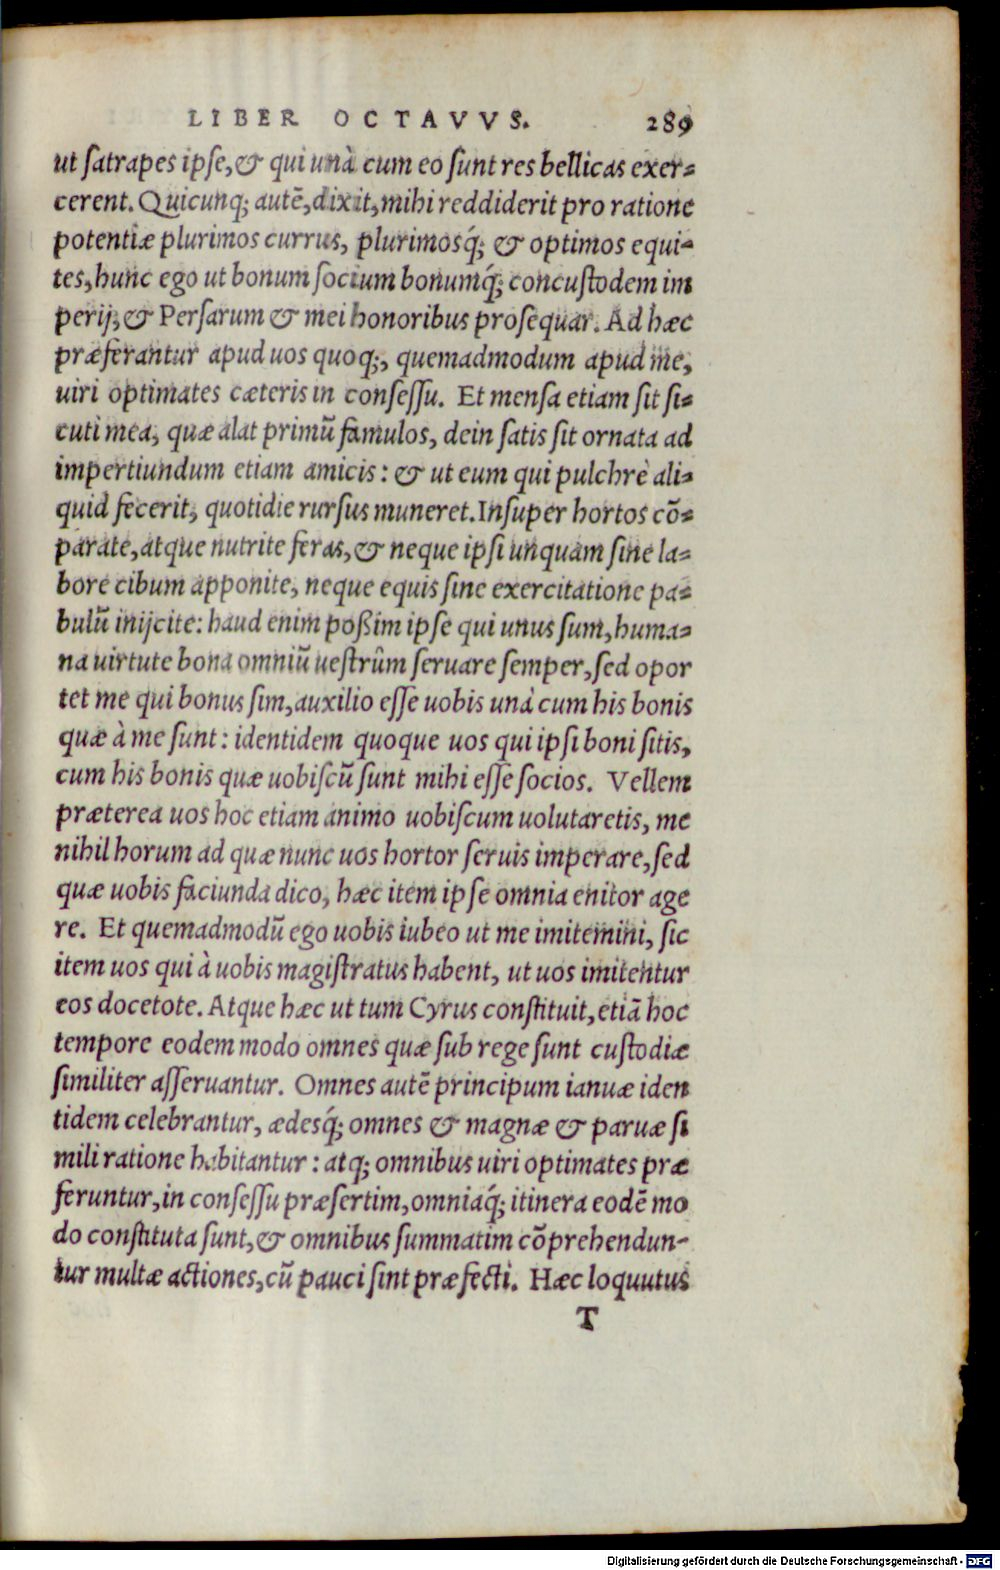 LIBER OCTAVVS. 289
ut ſatrapes ipſe, & qui unà cum eo ſunt res bellicas exer-
cerent. Quicunq; autē, dixit, mihi reddiderit pro ratione
potentiæ plurimos currus, plurimosq́; & optimos equi-
tes, hunc ego ut bonum ſocium bonumq́; concuſtodem im
perij, & Perſarum & mei honoribus proſequar. Ad hæc
præferantur apud uos quoq;, quemadmodum apud me,
uiri optimates cæteris in conſeſſu. Et menſa etiam ſit ſi-
cuti mea, quæ alat primū famulos, dein ſatis ſit ornata ad
impertiundum etiam amicis: & ut eum qui pulchrè ali-
quid fecerit, quotidie rurſus muneret. Inſuper hortos cō-
parate, atque nutrite feras, & neque ipſi unquam ſine la-
bore cibum apponite, neque equis ſine exercitatione pa-
bulū inijcite: haud enim poßim ipſe qui unus ſum, huma-
na uirtute bona omniū ueſtrûm ſeruare ſemper, ſed opor
tet me qui bonus ſim, auxilio eſſe uobis unà cum his bonis
quæ à me ſunt: identidem quoque uos qui ipſi boni ſitis,
cum his bonis quæ uobiſcū ſunt mihi eſſe ſocios. Vellem
præterea uos hoc etiam animo uobiſcum uolutaretis, me
nihil horum ad quæ nunc uos hortor ſeruis imperare, ſed
quæ uobis faciunda dico, hæc item ipſe omnia enitor age
re. Et quemadmodū ego uobis iubeo ut me imitemini, ſic
item uos qui à uobis magiſtratus habent, ut uos imitentur
eos docetote. Atque hæc ut tum Cyrus conſtituit, etiā hoc
tempore eodem modo omnes quæ ſub rege ſunt cuſtodiæ
ſimiliter aſſeruantur. Omnes autē principum ianuæ iden
tidem celebrantur, ædesq́; omnes & magnæ & paruæ ſi
mili ratione habitantur: atq; omnibus uiri optimates præ
feruntur, in conſeſſu præſertim, omniaq́; itinera eodē mo
do conſtituta ſunt, & omnibus ſummatim cōprehendun-
tur multæ actiones, cū pauci ſint præfecti. Hæc loquutus
T
Digitalisierung gefördert durch die Deutsche Forschungsgemeinschaft - DFG